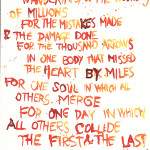 OF MILLIONS
FOR THE MISTAKES MADE
& THE DAMAGE DONE
FOR THE THOUSAND ARROWS
IN ONE BODY THAT MISSED
THE HEART BY MILES
FOR ONE SOUL IN WHICH ALL
OTHERS MERGE
FOR ONE DAY IN WHICH
ALL OTHERS COLLIDE
THE FIRST & THE LAST